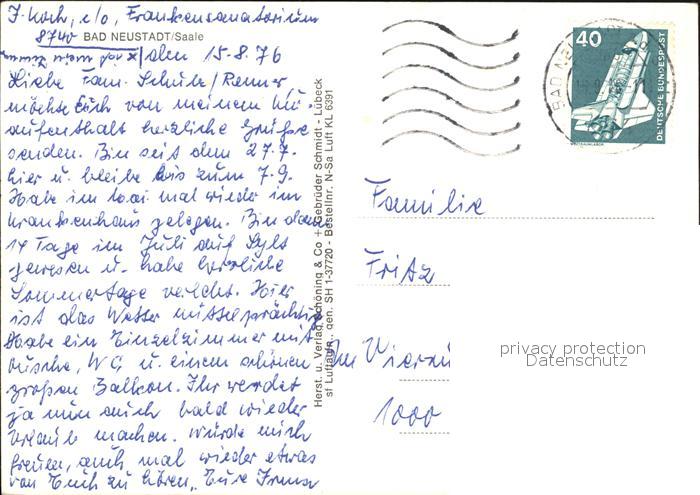 J. Koch, c/o, Frankensanatorium
8740 BAD NEUSTADT/Saale
x/den 15.8.76
Liebe Fam. Schulz/Renner
möchte Euch von meinem Kur-
aufenthalt herzliche Grüße
senden. Bin seit dem 27.7.
hier u. bleibe bis zum 7.9.
Habe im Mai mal wieder im
Krankenhaus gelegen. Bin dann
14 Tage im Juli auf Sylt
gewesen u. habe herrliche
Sommertage verlebt. Hier
ist das Wetter mittelprächtig
Habe ein Einzelzimmer mit
Dusche, WC u. einem schönen
großen Balkon. Ihr werdet
ja nun auch bald wieder
Urlaub machen. Würde mich
freuen, auch mal wieder etwas
von Euch zu hören. Eure Irmga
Herst. u. Verlag Schöning & Co + Gebrüder Schmidt - Lübeck
SH 1-37720 - Bestellnr. N-Sa Luft KL 6391
40
DEUTSCHE BUNDESPOST
WELTRAUMLABOR
BAD NEU
Familie
Fritz
1000
privacy protection
Datenschutz